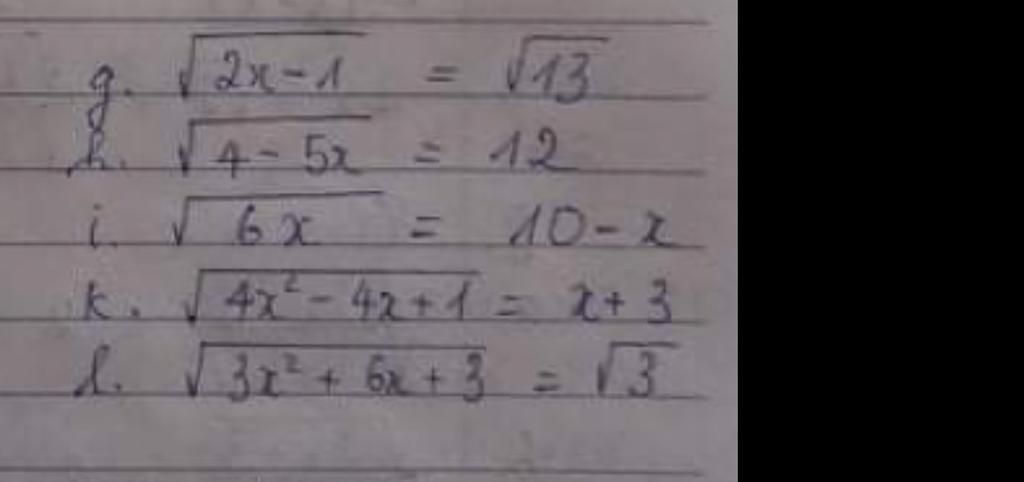 g. √(2x-1) = √13
h. √(4-5x) = 12
i. √(6x) = 10-x
k. √(4x²-4x+1) = x+3
l. √(3x²+6x+3) = √3